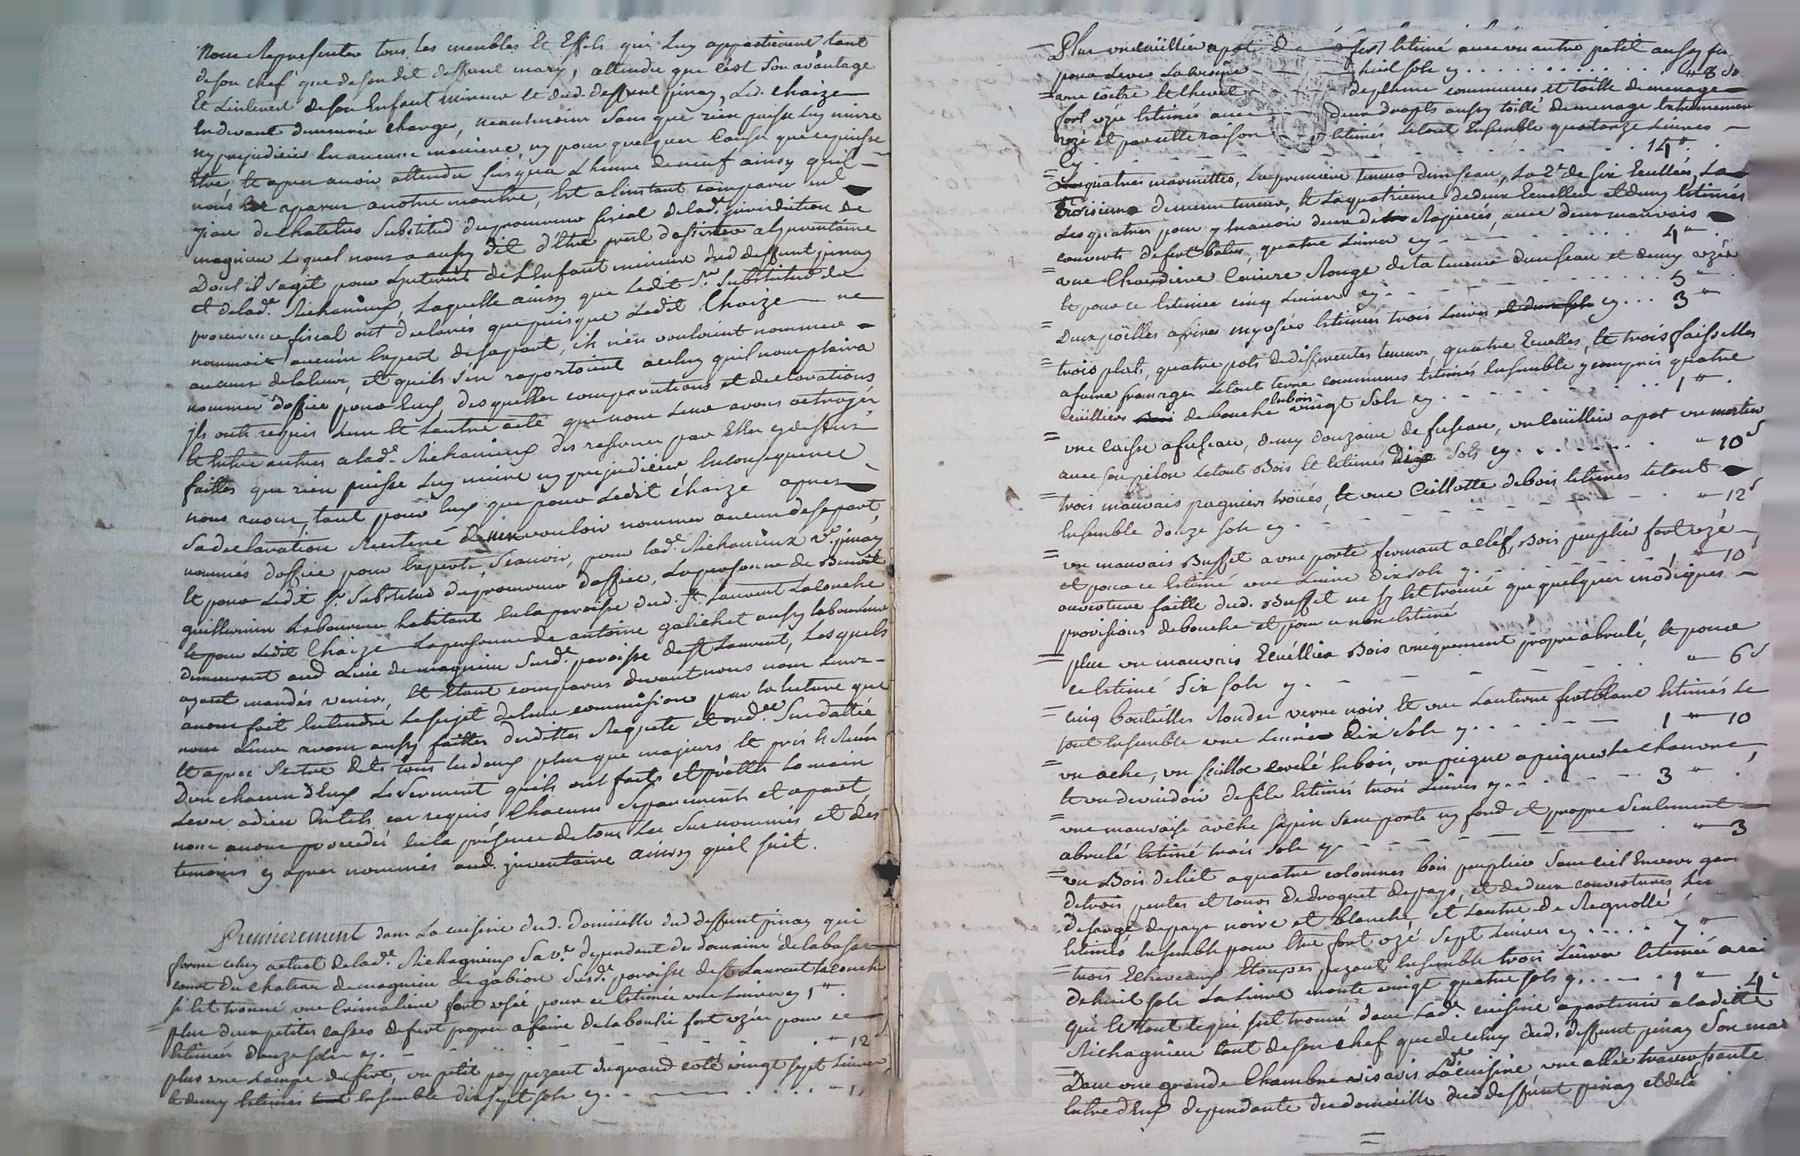 nous Representer tous les meubles Et Effets qui luy appartiennent tant
de son chef que de son dit deffunt mary, attendu que c'est son avantage
Et L'interest de son Enfant mineur et dud. deffunt pinay, Led. chaize
neantmoins sans que rien puisse luy nuire
ny prejudicier En aucune maniere, ny pour quelque Cause que ce puisse
Etre, Et apres avoir attendu jusqu'a L'heure de neuf ainsy qu'il
nous a parru a notre montre, Est a l'instant comparu me
de chatelus Substitud du procureur fiscal de lad. jurisdiction de
magnieu Lequel nous a aussy dit d'Etre prest d'assister a L'inventaire
Dont il s'agit pour L'interest de L'Enfant mineur dud. deffunt pinay
et de lad. Richagnieux, Laquelle ainsy que Ledit Sr. Substitud de
procureur fiscal ont declarés que puisque Ledit Chaize ne
nommoit aucun Expert de sa part, ils n'en vouloient nommer
aucuns de la leur, et qu'ils s'en raportoient a celuy qu'il nous plaira
nommer d'office pour Eux, desquelles comparutions et declarations
ils ont requis L'un Et L'autre acte que nous Leur avons octroyé
Et Entre autres a lad. Richagnieux des reserves par Elle cy dessus
faittes que rien puisse Luy nuire ny prejudicier En consequence
nous avons, tant pour Eux que pour Ledit chaize apres
Sa declaration Reiteré de n'en vouloir nommer aucun de sa part,
nommés d'office pour Experts, Scavoir, pour lad. Richagnieux Ve. pinay
Et pour Ledit Sr. Substitud du procureur d'office, La personne de Benoit
guillermin Laboureur habitant En la paroisse dud. St. Laurent Laconche
Et pour Ledit Chaize La personne de antoine galichet aussy laboureur
demeurant aud. Lieu de magnieu Susd. paroisse de St Laurent, Lesquels
ayant mandés venir, Et Etant comparus devant nous nous Leurs
avons fait Entendre Le sujet de leur commission par la lecture que
nous Leur avons aussy faitte desdittes Requete et ord.ce Sus dattée
Et apres S'estre dits tous les deux plus que majeurs Et pris Et Reçu
D'un chacun d'Eux Le serment qu'ils ont fait et prettés la main
Levée adieu En tels cas requis Chacuns Separement et apart,
nous avons procedés En la présence de tous Les Surnommés et des
temoins cy apres nommés aud. inventaire ainsy quil suit.
Premierement dans La cuisine dud. Domicille dud deffunt pinay qui
forme celuy actuel de lad. Richagnieux Sa ve. dependant du domaine de la basse
cour du chateau de magnieu le gabion Susd. paroisse de St Laurent Laconche
s'est trouvé une Crémaliere fort usée pour ce Estimée une Livre cy 1"
plus deux petites casses de fert propre a faire de la boulie fort uzées pour ce
Estimées douze sols cy 12
plus une Lampe de fert, un petit poy pezant du grand coté vingt sept Livres
Et demy Estimés Ensemble dix sept sols cy
Plus une cuillier a pot de fert Estimé avec un autre petit aussy fert
huit sols cy " 8 s
une coitre Et chevet de plume commune, et toille de menage
fort uzé Estimés avec deux draps aussy toille de menage
uzé et par cette raison Estimés Letout Ensemble quatorze Livres
cy 14"
quatres marmittes, La premiere tenue d'un seau, La 2e de six Ecuelles, La
troisieme de meme teneur, Et la quatrieme de deux Ecuelles et demy Estimés
Les quatres pour y en avoir deux de Rapiecés, avec deux mauvais
couverts de fert battus, quatre Livres cy 4"
une Chaudiere Cuivre Rouge de la teneur d'un seau et demy uzée
Et pour ce Estimée cinq Livres cy 5"
Deux poëlles a frire uzées Estimés trois Livres cy 3"
trois plats, quatre pots de differentes teneur, quatre Ecuelles, Et trois faisselles
a faire fromages Letout terre commune Estimés Ensemble y compris quatre
cuilliers de bouche en bois vingt Sols cy 1"
une caisse a fuseau, demy douzaine de fuseau, un cuillier a pot un mortier
avec son pilon Letout Bois Et Estimés Dix Sols cy " 10 s
trois mauvais pagniers troués, Et une Cullotte de bois Estimés Letout
Ensemble douze sols cy " 12 s
un mauvais Buffet a une porte fermant a clef, Bois peuplier fort uzé
et pour ce Estimé une Livre Dix sols cy 1" 10
ouverture faitte dud. Buffet ne s'y est trouvé que quelques modiques
provisions de bouche et pour ce non Estimé
plus un mauvais Ecuellier Bois uniquement propre abrulé, Et pour
ce Estimé Six sols cy " 6 s
Cinq bouteilles Rondes verre noir Et une Lanterne fert blanc Estimés Le
tout Ensemble une Livre Dix Sols cy 1" 10
un ache, un peigne a peigner Le chanvre,
Et un devidoir de file Estimés trois Livres cy 3"
une mauvaise arche sapin sans porte ny fond et propre Seulement
abrulé Estimé trois sols cy " 3
un Bois de Lit a quatre colonnes bois peuplier Sans ciel Environ garni
de trois pentes et tours de droguet de pays, et de deux couvertures,
de sarge de pays noire et blanche et L'autre de Regnolle,
Estimés Ensemble pour Etre fort uzé Sept Livres cy 7"
trois Echeveaux Etoupes pezant Ensemble trois Livres Estimée a rai
de huit sols La Livre monte vingt quatre sols cy 1" 4 s
Qui Et tout Ce qui s'est trouvé dans Lad. cuisine apartenir a ladite
Richagnieu tant de son chef que de celuy dud. deffunt pinay Son mar
Dans une grande Chambre visavis La de cuisine une allée traversante
Entre d'Eux dependante du domicille dud deffunt pinay et de la